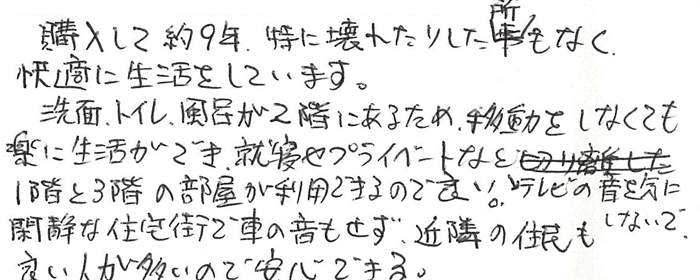 購入して約9年、特に壊れたりした所もなく、
快適に生活をしています。
洗面、トイレ、風呂が2階にあるため、移動をしなくても
楽に生活ができ、就寝やプライベートなど
1階と3階の部屋が利用できるので良い。テレビの音を気に
しないで、
閑静な住宅街で車の音もせず、近隣の住民も
良い人が多いので安心できる。